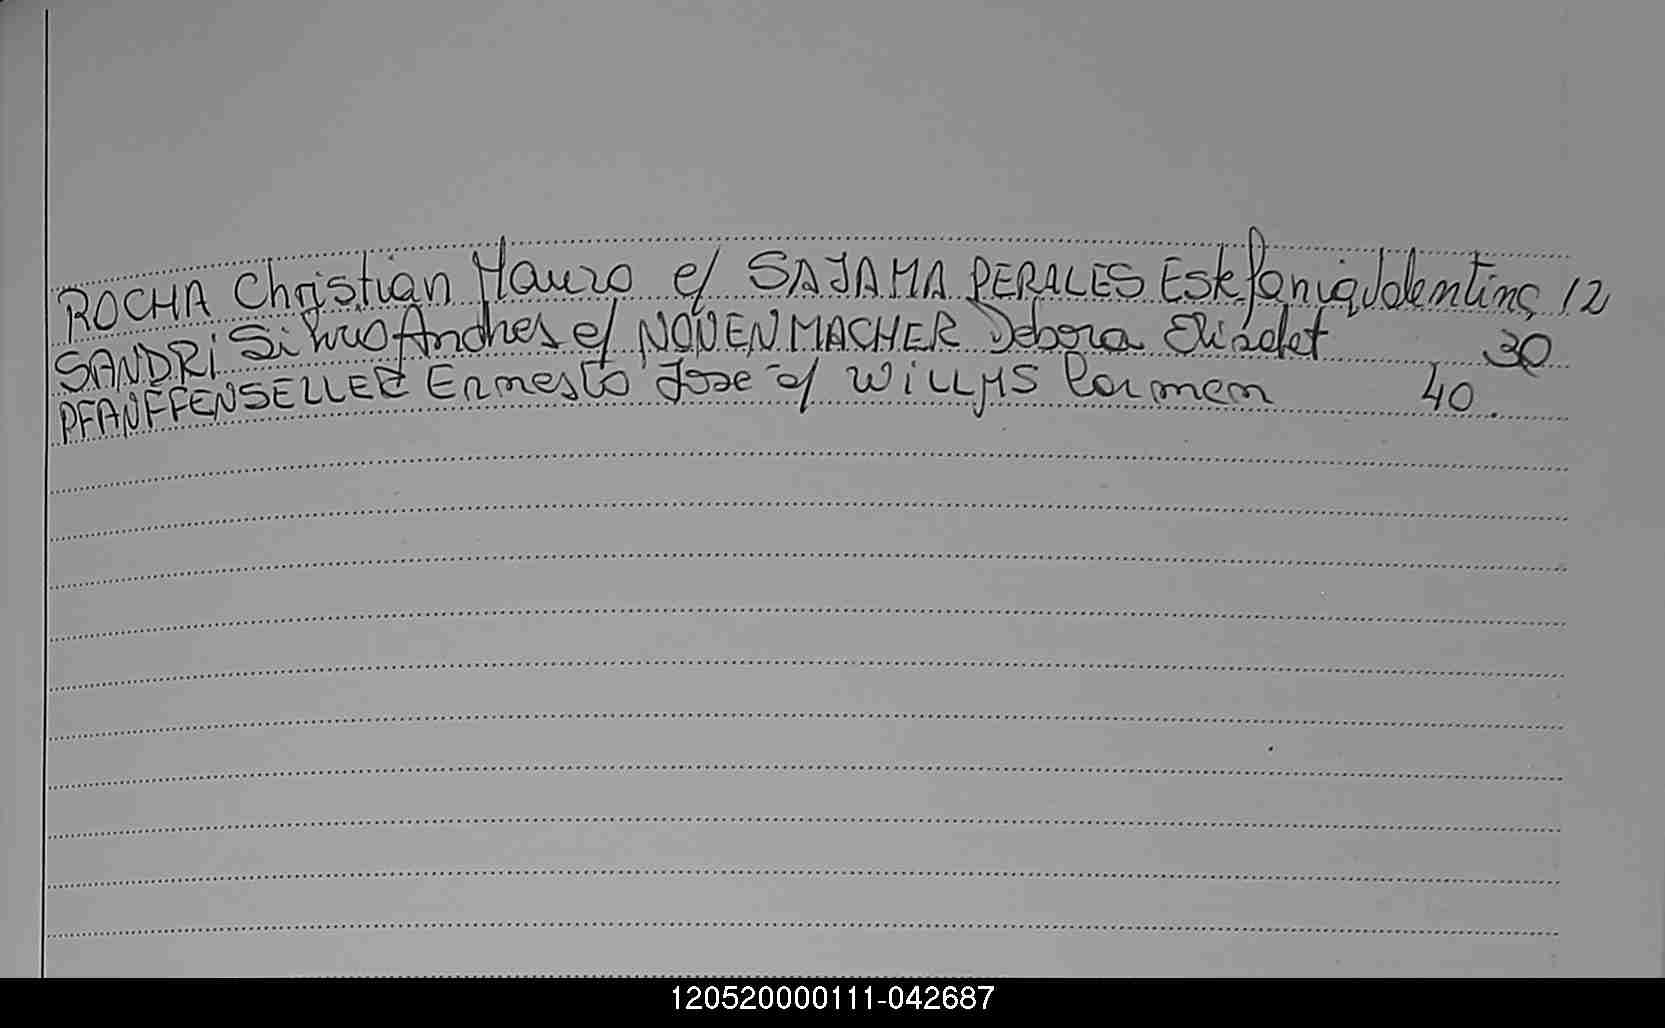 ROCHA Christian Mauro e/ SAJAMA PERALES Estefania Valentina 12
SANDRI Silvio Andres e/ NOVENMACHER Debora Elizabet 30
PFANFFENSELLER Ernesto Jose e/ WILLMS Carmen 40.
120520000111-042687